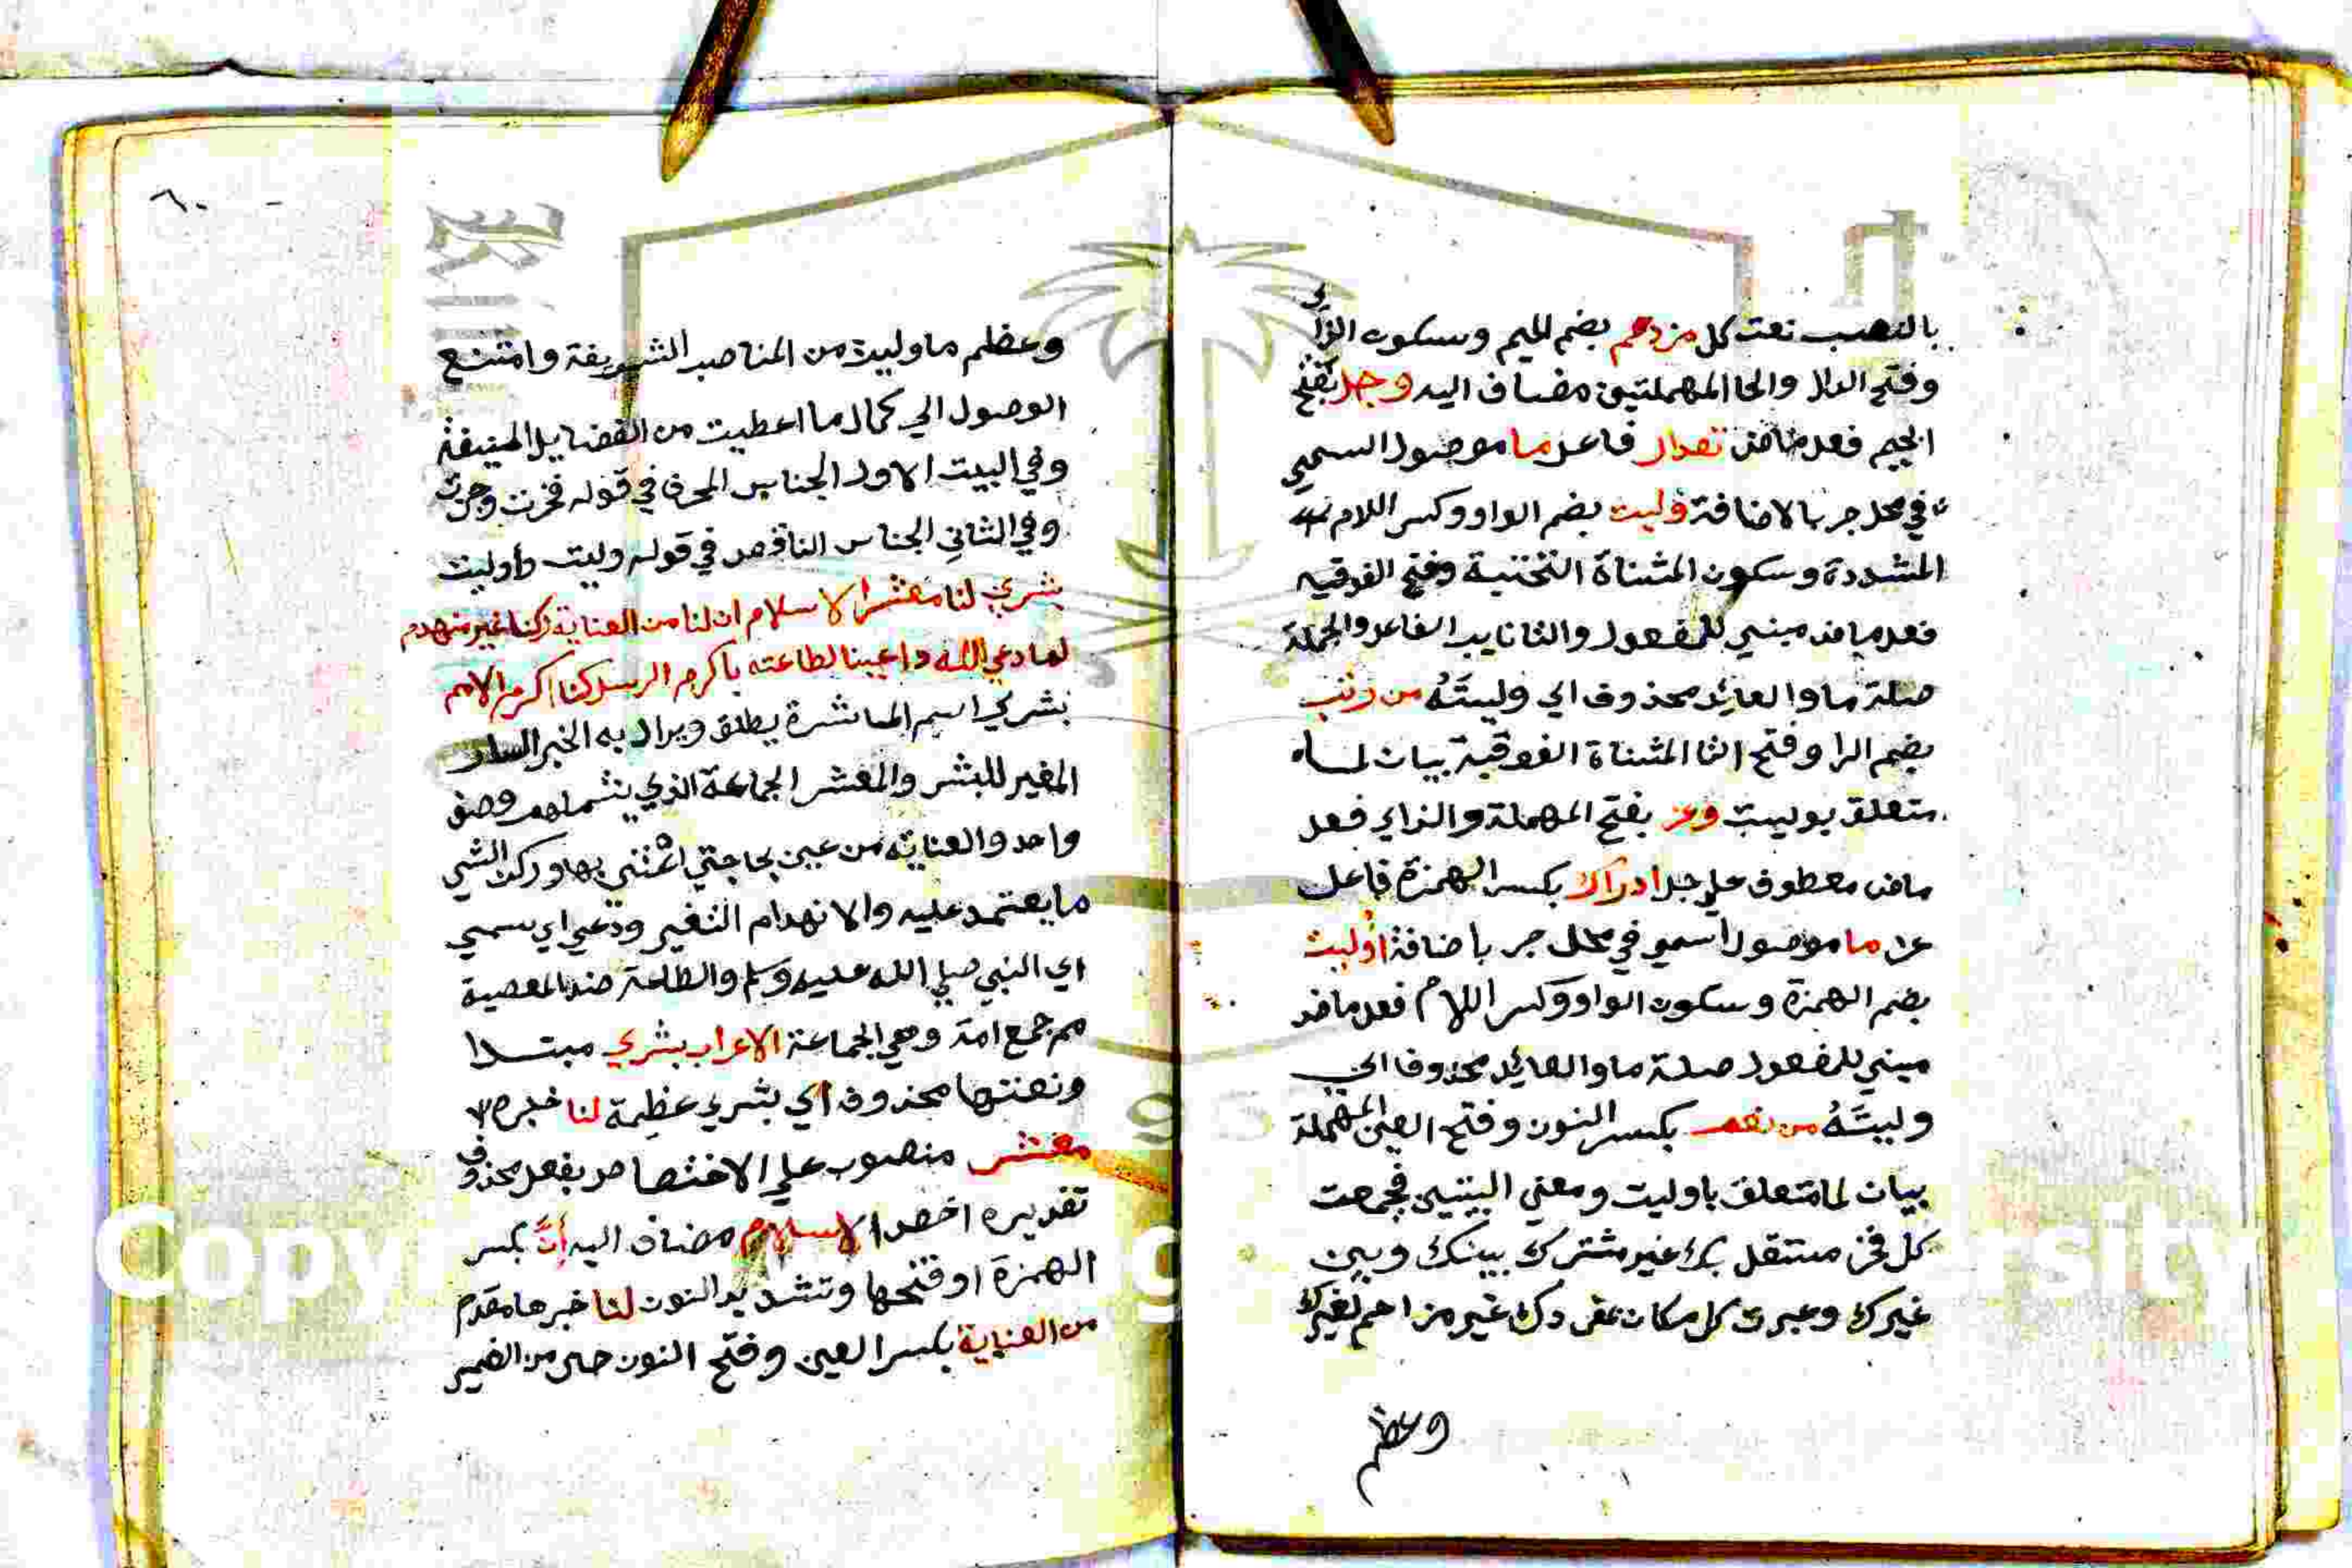 بالنصب نعت كل مزدحم بضم الميم وسكون الزاي
وفتح الدال والحا المهملتين مضاف اليه وجل بفتح
الجيم فعل ماض مقدار فاعل ما موصول اسمي
في محل جر بالاضافة وليت بضم الواو وكسر اللام
المشددة وسكون المثناة التحتية وفتح الفوقيه
فعل ماض مبني للمفعول والتا نايب الفاعل والجملة
صلة ما والعايد محذوف اي وليتَهُ من رتب
بضم الرا وفتح التا المثناة الفوقية بيان لما
متعلق بوليت وعز بفتح المهملة والزاي فعل
ماض معطوف علي جل ادراك بكسر الهمزة فاعل
عز ما موصول اسمي في محل جر باضافة اُوليت
بضم الهمزة وسكون الواو وكسر اللام فعل ماض
مبني للمفعول صلة ما والعايد محذوف اي
وليتَهُ من نعم بكسر النون وفتح العين المهملة
بيان لما متعلق باوليت ومعني البيتين فجمعت
كل فخر مستقل بك غير مشترك بينك وبين
غيرك وعبرت كل مكان غير مزاحم لغيرك
وعظم
٦٠
وعظم ما وليت من المناصب الشريفة وامتنع
الوصول الي كمال ما اعطيت من الفضايل المنيفة
وفي البيت الاول الجناس المحرف في قوله فحزت وجزت
وفي الثاني الجناس الناقص في قوله وليت واوليت
بشري لنا معشر الاسلام ان لنا من العناية ركنا غير منهدم
لما دعي الله داعينا لطاعته باكرم الرسل كنا اكرم الامم
بشري اسم المباشرة يطلق ويراد به الخبر السار
المغير للبشر والمعشر الجماعة الذي يشملهم وصف
واحد والعناية من عني بحاجتي اعتني بها وركن الشي
ما يعتمد عليه والانهدام التغير ودعي اي سمي
اي النبي صلي الله عليه وسلم والطاعة ضد المعصية
مم جمع امة وهي الجماعة الاعراب بشري مبتدا
ونعتها محذوف اي بشري عظيمة لنا خبره
معشر منصوب علي الاختصاص بفعل محذوف
تقديره اخص الاسلام مضاف اليه اِنَّ بكسر
الهمزة او فتحها وتشديد النون لنا خبرها مقدم
من العناية بكسر العين وفتح النون حال من الضمير